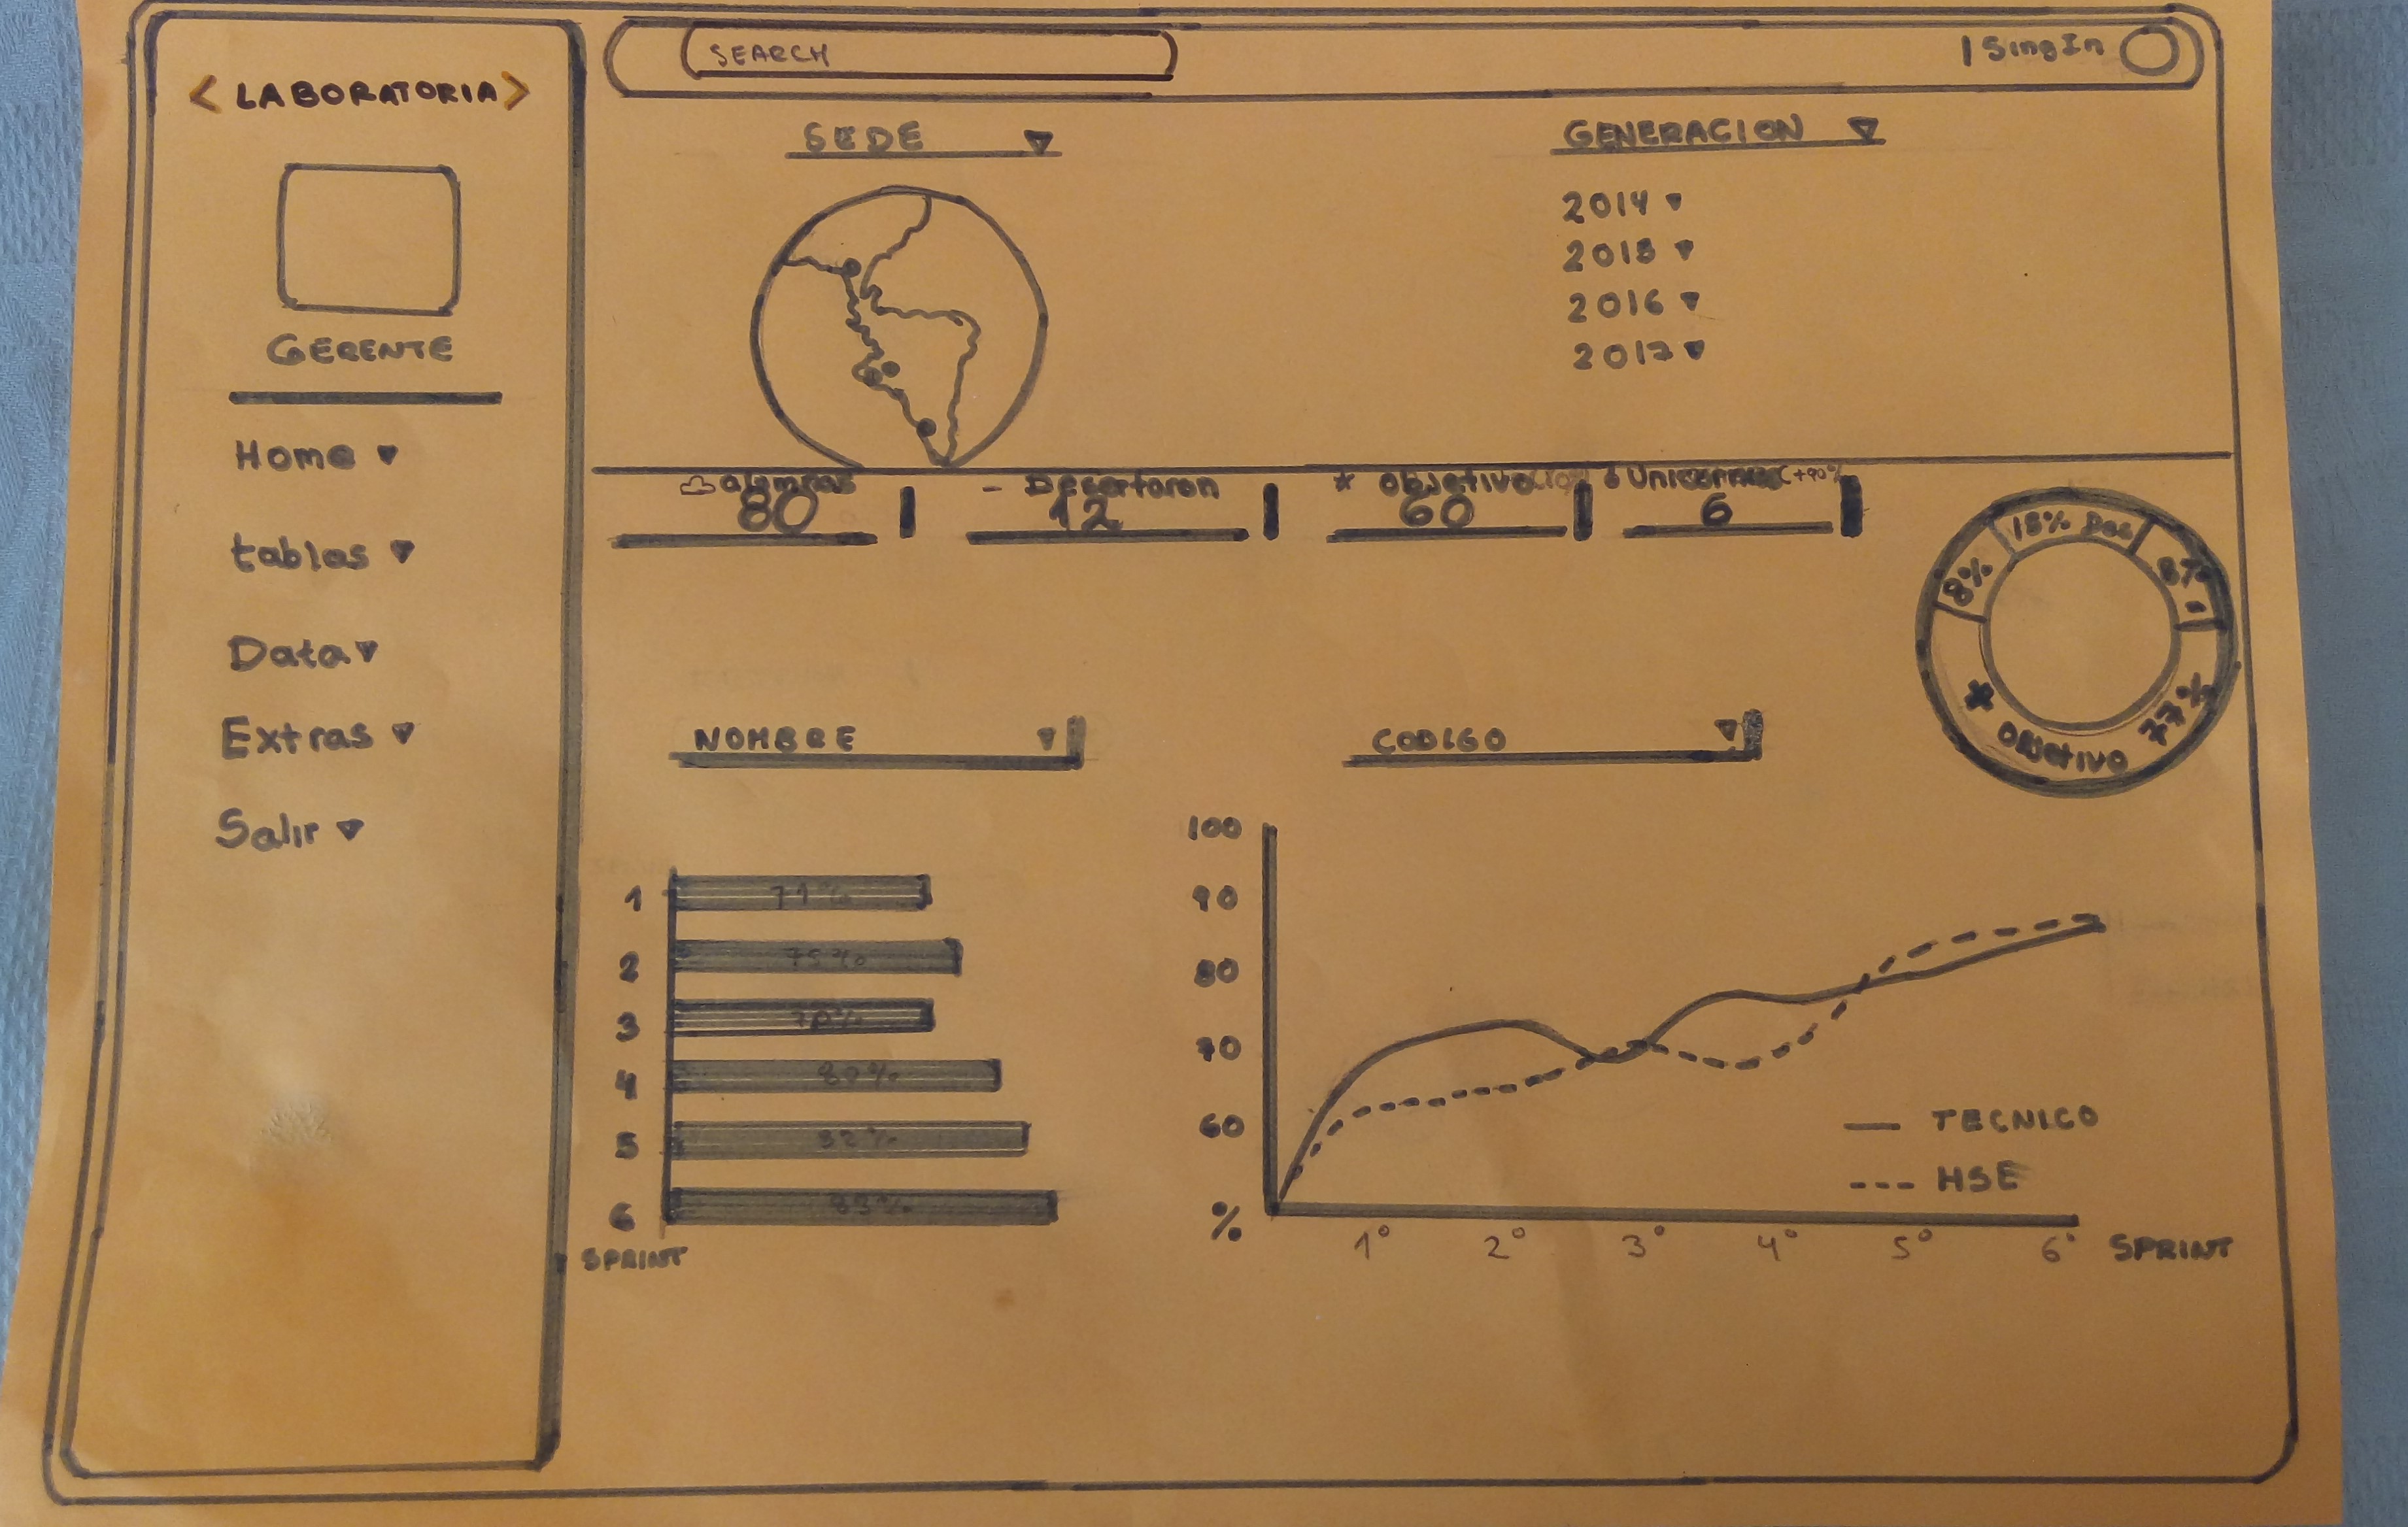 < LABORATORIA >
GERENTE
Home
tablas
Data
Extras
Salir
SEARCH
| SingIn
SEDE
GENERACION
2014
2015
2016
2017
alumnas
80
- Desertaron
12
* Objetivo
60
6
(+90%
8%
15% Des
* Objetivo 77%
NOMBRE
CODIGO
1
2 75%
3 70%
4 80%
5 82%
6 83%
SPRINT
100
90
80
70
60
%
1° 2° 3° 4° 5° 6° SPRINT
— TECNICO
--- HSE